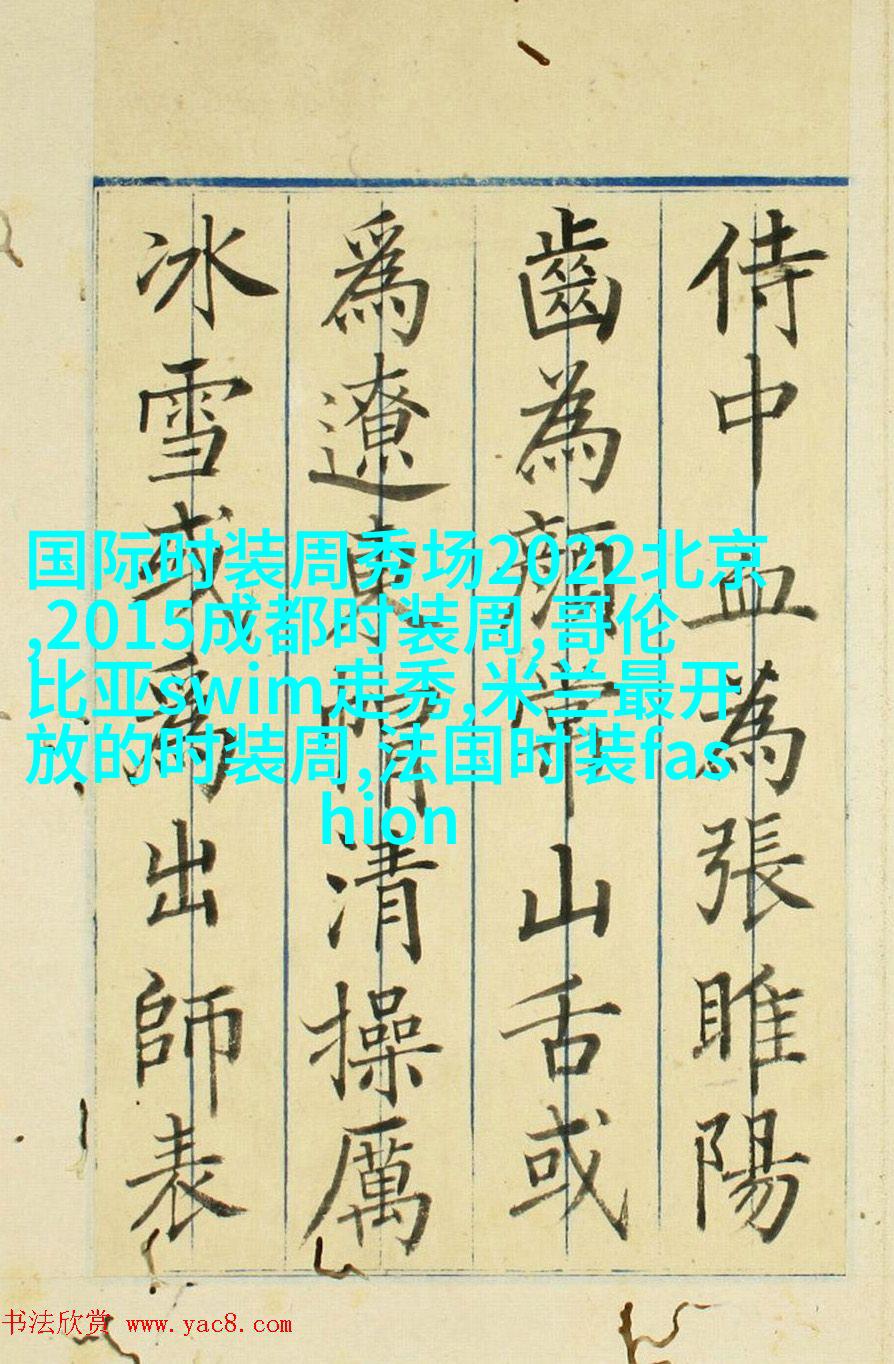 侍中血為張睢陽
齒為顏常山舌或
爲遼東帽清操厲
冰雪或爲出師表
国际时装周秀场2022北京
,2015成都时装周,哥伦
比亚swim走秀,米兰最开
放的时装周,法国时装fas
hion
书法欣赏 www.yac8.com